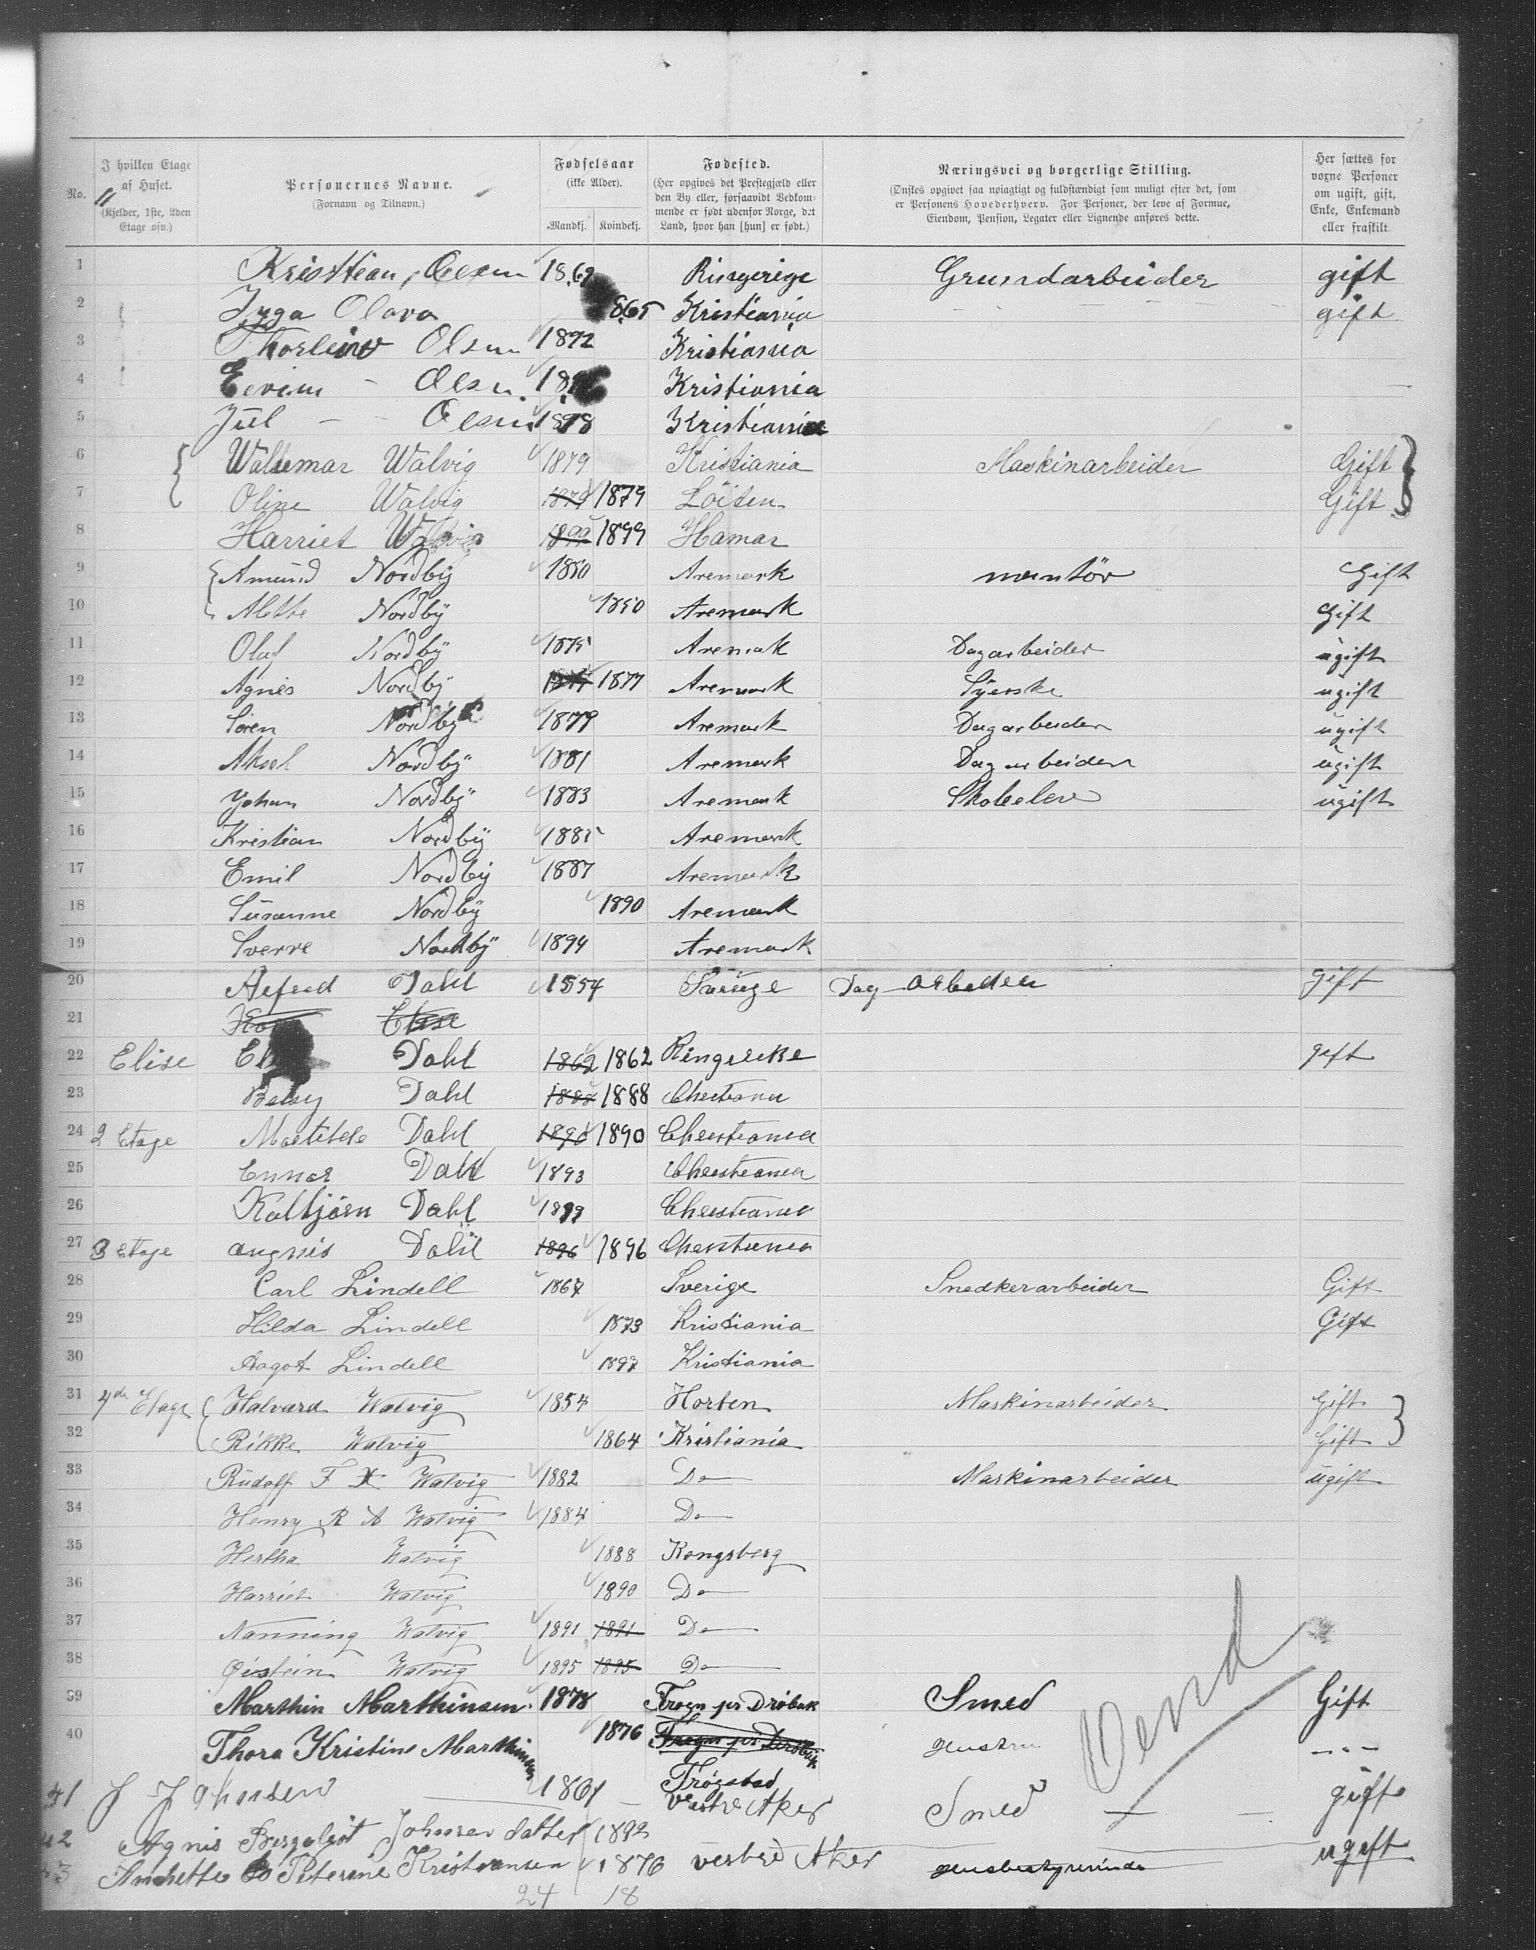 No.
I hvilken Etage af Huset. (Kjelder, 1ste, 2den Etage osv.)
Personernes Navne. (Fornavn og Tilnavn.)
Fødselsaar (ikke Alder). Mandkj. Kvindekj.
Fødested. (Her opgives det Prestegjæld eller den By eller, forsaavidt Vedkommende er født udenfor Norge, det Land, hvor han [hun] er født.)
Næringsvei og borgerlige Stilling. (Ønskes opgivet saa nøiagtigt og fuldstændigt som muligt efter det, som er Personens Hovederhverv. For Personer, der leve af Formue, Eiendom, Pension, Legater eller Lignende anføres dette.
Her sættes for voxne Personer om ugift, gift, Enke, Enkemand eller fraskilt
1 Kristian Olsen 1869 Ringerige Grundarbeider gift
2 Inga Olava 865 Kristiania gift
3 Olsen 1892 Kristiania
4 Olsen Kristiania
5 Jul Olsen 1898 Kristiania
6 Waldemar Walvig 1879 Kristiania Maskinarbeider Gift
7 Oline Walvig 1879 1879 Löiten Gift
8 Harriet Walvig 1899 1899 Hamar
9 Amund Nordby 1850 Aremark mentör Gift
10 Alethe Nordby 1850 Aremark Gift
11 Olaf Nordby 1875 Aremak Dagarbeider ugift
12 Agnes Nordby 1877 Aremark Syerske ugift
13 Sören Nordby 1879 Aremark Dagarbeider ugift
14 Aksel Nordby 1881 Aremark Dagarbeider ugift
15 Johan Nordby 1883 Aremark Skoleelev ugift
16 Kristian Nordby 1885 Aremark
17 Emil Nordby 1887 Aremark
18 Susanne Nordby 1890 Aremark
19 Sverre Nordby 1894 Aremark
20 Alfred Dahl 1854 Dag arbeider gift
21 Elise
22 Elise Dahl 1862 1862 Ringerike gift
23 Dahl 1888 1888 Christiania
24 2 Etage Mathilde Dahl 1890 1890 Christiania
25 Einnar Dahl 1893 Christiania
26 Kolbjörn Dahl 1899 Christiania
27 3 Etage angnis Dahl 1896 1896 Christiania
28 Carl Lindell 1867 Sverige Snedkerarbeider Gift
29 Hilda Lindell 1873 Kristiania Gift
30 Aagot Lindell 1897 Kristiania
31 4de Etage Halvard Walvig 1854 Horten Maskinarbeider Gift
32 Rikke Walvig 1864 Kristiania Gift
33 Rudolf F Walvig 1882 Do Maskinarbeider ugift
34 Henry R A Walvig 1884 Do
35 Hertha Walvig 1888 Kongsberg
36 Harriet Walvig 1890 Do
37 Nanning Walvig 1891 1891 Do
38 Øistein Walvig 1895 1895 Do
39 Marthin Marthinsen 1878 Frogn pr Drøbak Smed Gift
40 Thora Kristine Marthinsen 1876 Frogn pr Drøbak Hustru
Trøgstad
41 J Johnsen 1861 Vestre Aker Smed gift
42 Agnis Johnsendatter 1892 ugift
43 Anchette Peterine Kristiansen 1876 vestre Aker Husbestyrerinde
24 18
Vend